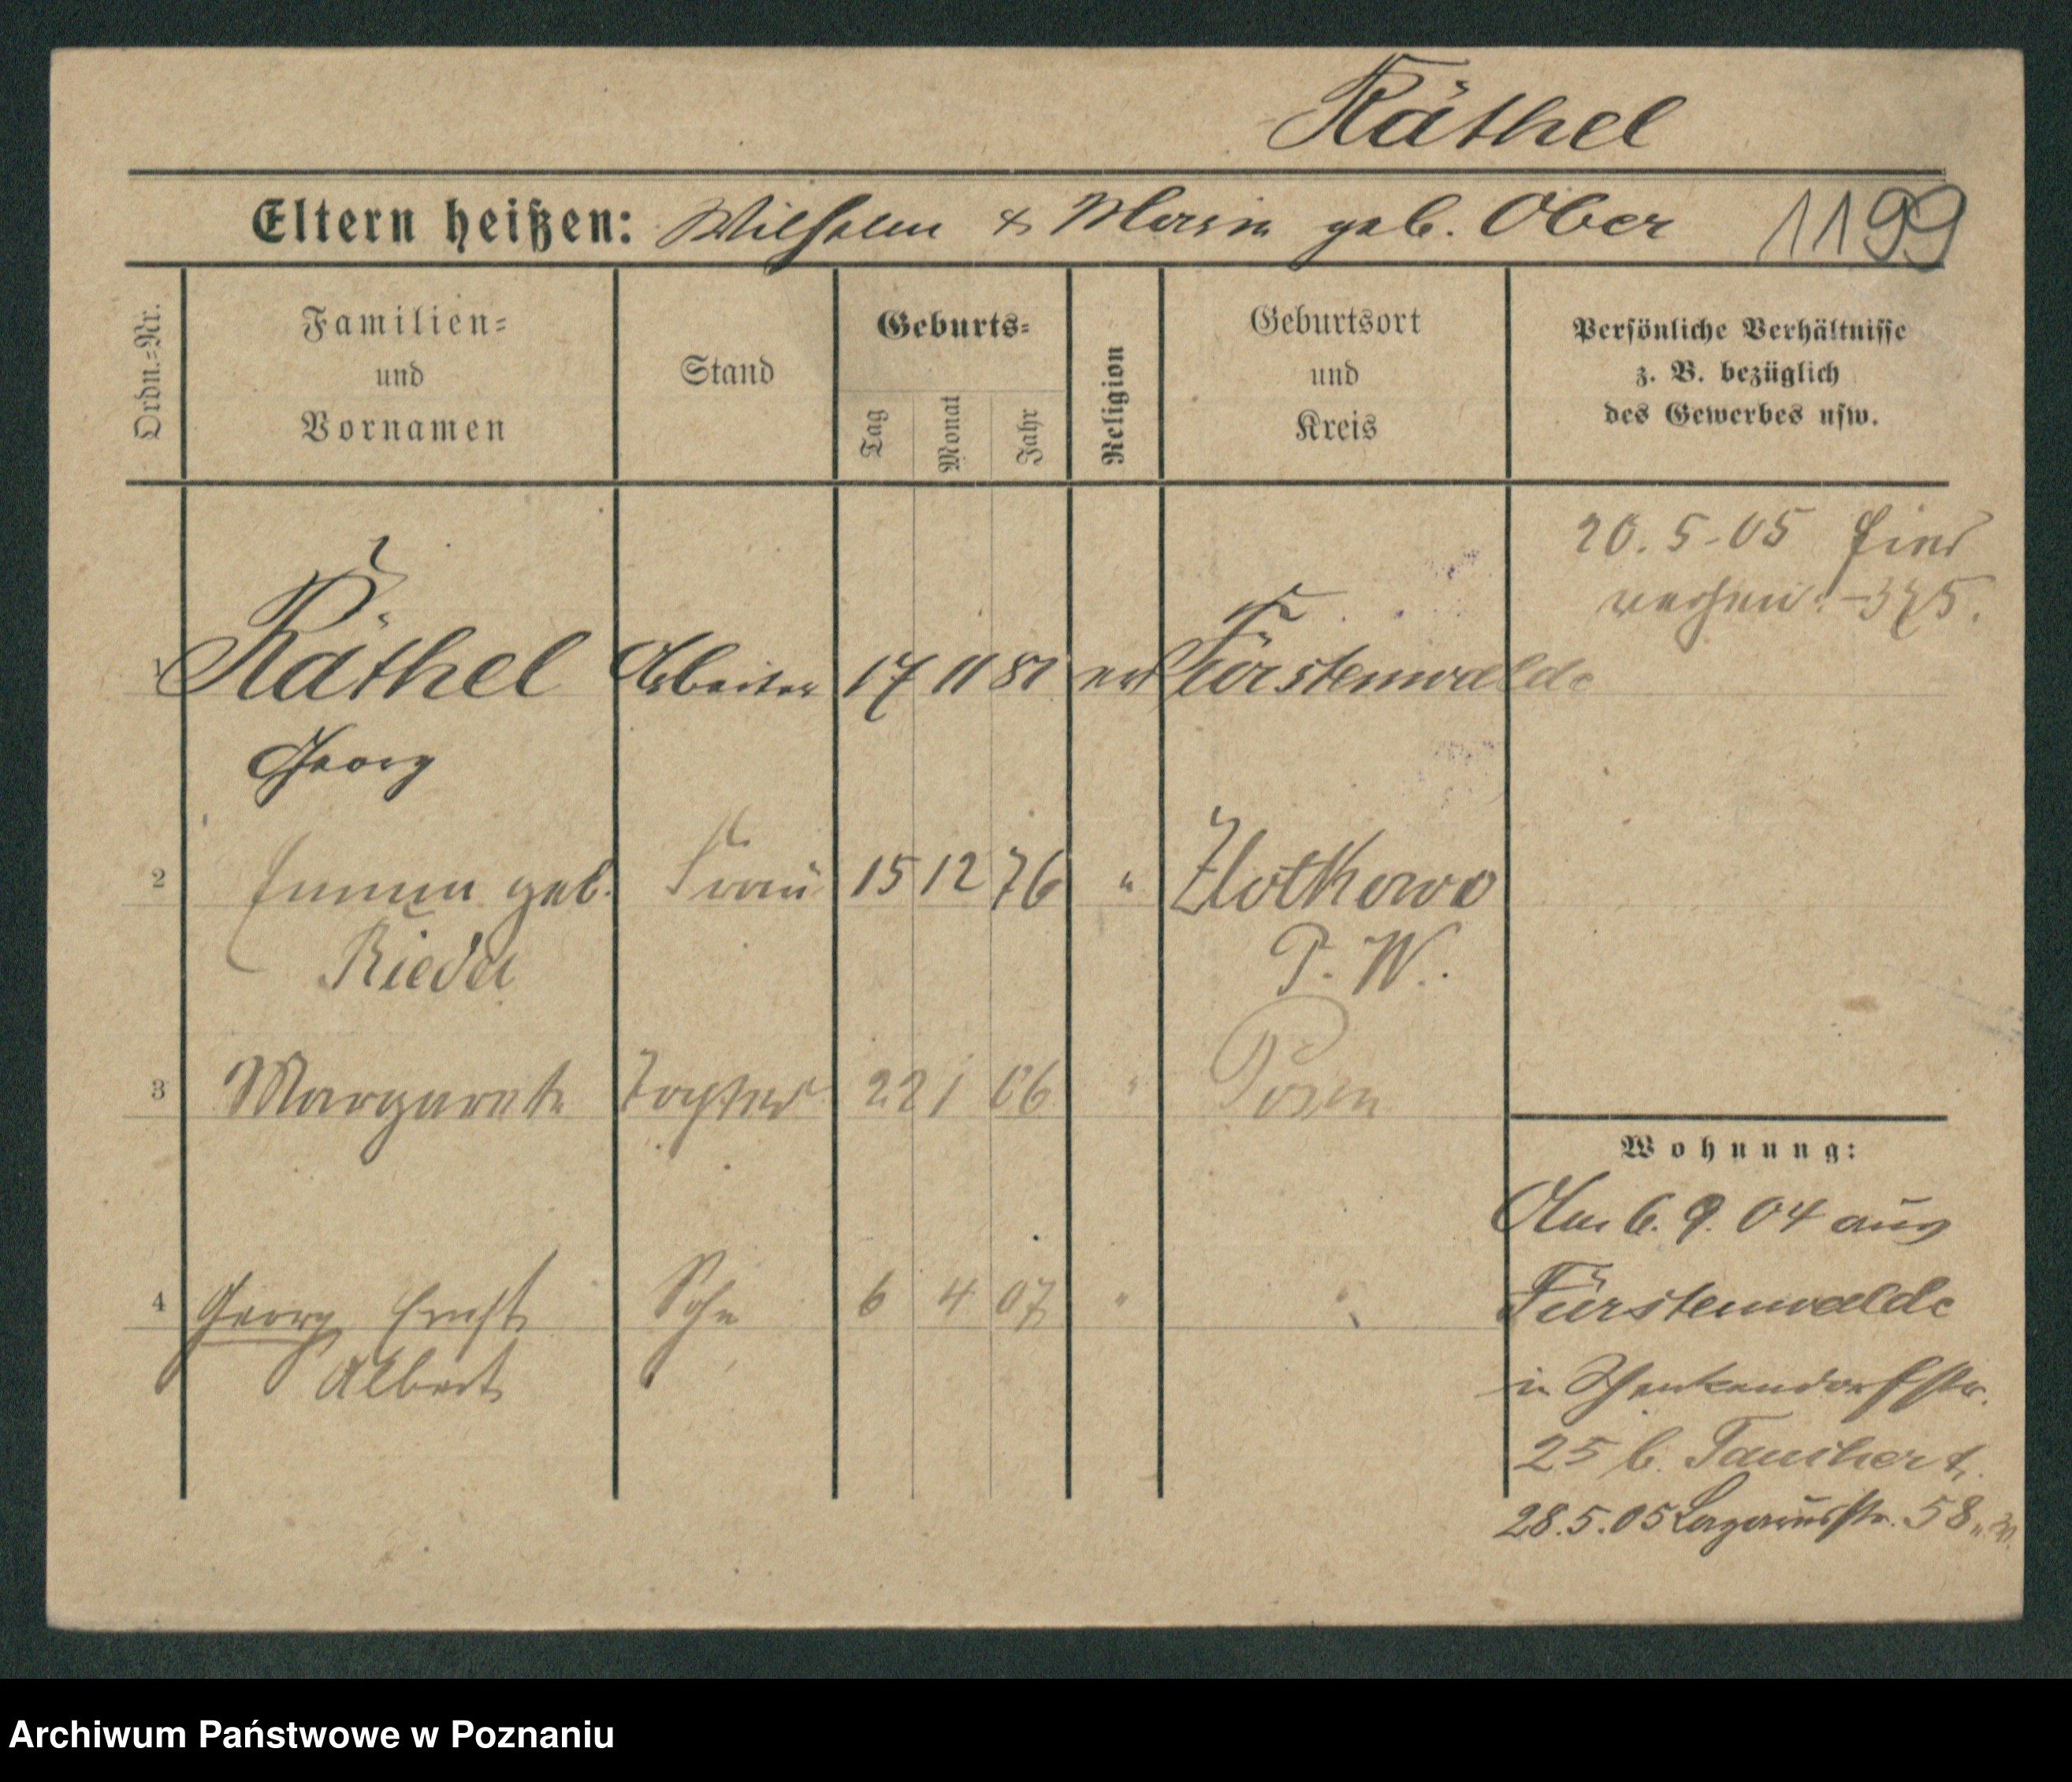 Räthel
Eltern heißen: Wilhelm & Maria geb. Ober 1199
Ordn.-Nr.
Familien-
und
Vornamen
Stand
Geburts-
Tag
Monat
Jahr
Religion
Geburtsort
und
Kreis
Persönliche Verhältnisse
z. B. bezüglich
des Gewerbes usw.
20.5.05 hier
1 Räthel Arbeiter 17 11 81 Fürstenwalde
Georg
2 Emma geb. Frau 15 12 76 " Zlotkowo
Riedel P. W.
3 Margarete Tochter 22 1 06 " Posen
4 Georg Ernst Sohn 6 4 07 " "
Albert
Wohnung:
Am 6.9.04 aus
Fürstenwalde
in Schenkendorfstr.
25 b.
28.5.05 Lazarusstr. 58
Archiwum Państwowe w Poznaniu